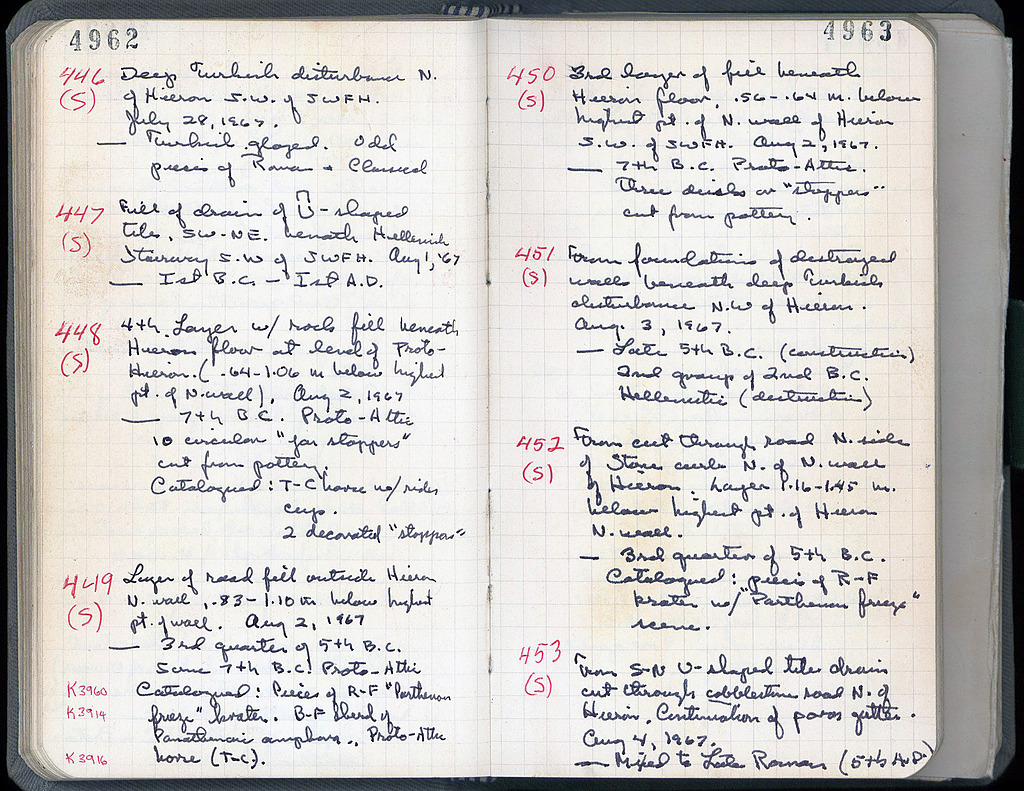 4962
446 Deep Turkish disturbance N.
(S) of Hieron S.W. of SWFH.
July 28, 1967.
— Turkish glazed. Odd
pieces of Roman + Classical
447 Fill of drain of U-shaped
tiles, SW-NE. beneath Hellenistic
(S) Stairway S.W of SWFH. Aug 1, '67
— Ist B.C. - Ist A.D.
448 4th Layer w/ rock fill beneath
(S) Hieron floor at level of Proto-
Hieron. (.64-1.06 m below highest
pt. of N. wall), Aug 2, 1967
— 7th B.C. Proto-Attic
10 circular "jar stoppers"
cut from pottery.
Catalogued: T-C horse w/ rider
cup.
2 decorated "stoppers"
449 Layer of road fill outside Hieron
(S) N. wall, .83-1.10 m below highest
pt. of wall. Aug 2, 1967
— 3rd quarter of 5th B.C.
Some 7th B.C. Proto-Attic
K3960 Catalogued: Pieces of R-F "Parthenon
K3914 frieze" krater. B-F sherd of
Panathenaic amphora., Proto-Attic
K3916 horse (T-C).
4963
450 3rd layer of fill beneath
(S) Hieron floor, .56-.64 m. below
highest pt. of N. wall of Hieron
S.W. of SWFH. Aug 2, 1967.
— 7th B.C. Proto-Attic.
Three disks or "stoppers"
cut from pottery.
451 From foundations of destroyed
(S) walls beneath deep Turkish
disturbance N.W of Hieron.
Aug. 3, 1967.
— Late 5th B.C. (construction)
2nd group of 2nd B.C.
Hellenistic (destruction)
452 From cut through road N. side
(S) of Stone curb N. of N. wall
of Hieron. Layer 1.16-1.45 m.
below highest pt. of Hieron
N. wall.
— 3rd quarter of 5th B.C.
Catalogued: pieces of R-F
krater w/ "Parthenon frieze"
scene.
453 From S-N U-shaped tile drain
(S) cut through cobblestone road N. of
Hieron. Continuation of poros gutter.
Aug 4, 1967.
— Mixed to Late Roman (5th A.D.)